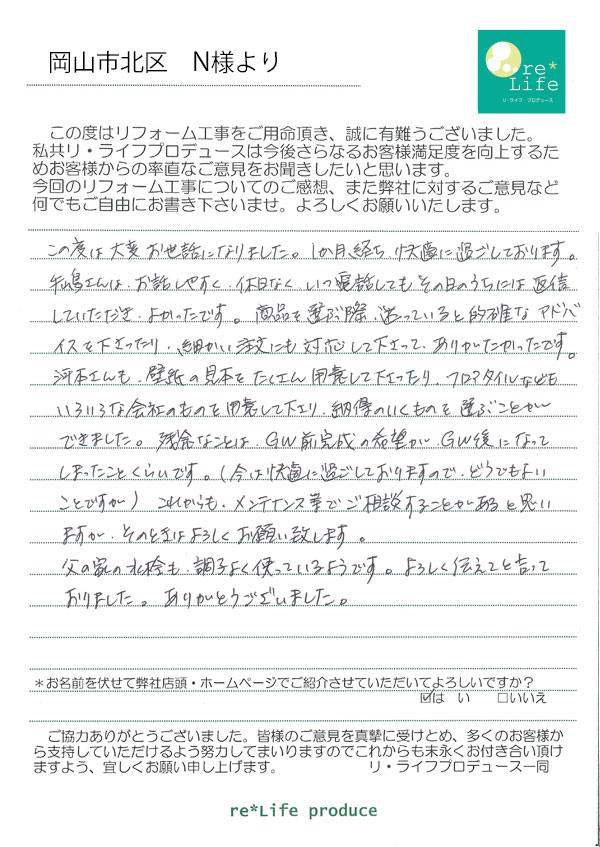 岡山市北区　N様より
re*
Life
リ・ライフ　プロデュース
この度はリフォーム工事をご用命頂き、誠に有難うございました。
私共リ・ライフプロデュースは今後さらなるお客様満足度を向上するた
めお客様からの率直なご意見をお聞きしたいと思います。
今回のリフォーム工事についてのご感想、また弊社に対するご意見など
何でもご自由にお書き下さいませ。よろしくお願いいたします。
この度は大変お世話になりました。1か月経ち、快適に過ごしております。
さんは、お話しやすく、休日なく、いつ電話してもその日のうちには返信
していただき、よかったです。商品を選ぶ際、迷っていると的確なアドバ
イスを下さったり、細かい注文にも対応して下さって、ありがたかったです。
河本さんも、壁紙の見本をたくさん用意して下さったり、フロアタイルなども
いろいろな会社のものを用意して下さり、納得のいくものを選ぶことが
できました。残念なことは、GW前完成の希望が、GW後になって
しまったことくらいです。(今は快適に過ごしておりますので、どうでもよい
ことですが)　これからも、メンテナンス等でご相談することがあると思い
ますが、そのときはよろしくお願い致します。
父の家の水栓も、調子よく使っているようです。よろしく伝えてと言って
おりました。ありがとうございました。
＊お名前を伏せて弊社店頭・ホームページでご紹介させていただいてよろしいですか？
☑は　い　　□いいえ
ご協力ありがとうございました。皆様のご意見を真摯に受けとめ、多くのお客様か
ら支持していただけるよう努力してまいりますのでこれからも末永くお付き合い頂け
ますよう、宜しくお願い申し上げます。　　　　リ・ライフプロデュース一同
re*Life produce